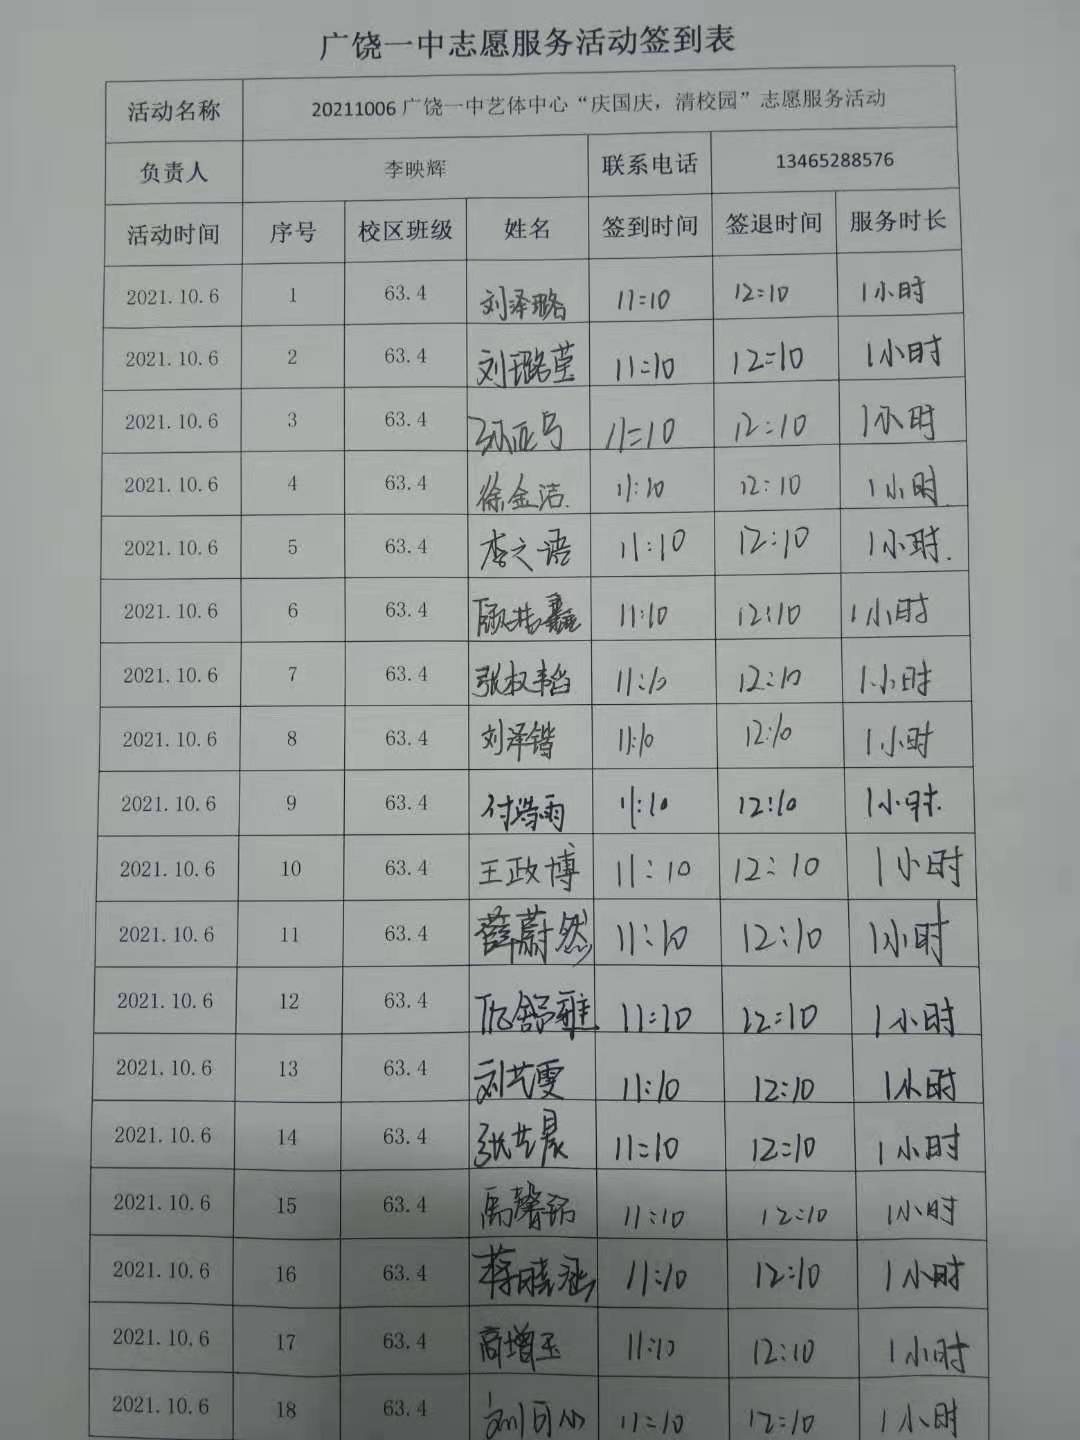 广饶一中志愿服务活动签到表
活动名称 20211006 广饶一中艺体中心“庆国庆，清校园”志愿服务活动
负责人 李映辉 联系电话 13465288576
活动时间 序号 校区班级 姓名 签到时间 签退时间 服务时长
2021.10.6 1 63.4 刘泽璐 11:10 12:10 1小时
2021.10.6 2 63.4 刘璐莹 11:10 12:10 1小时
2021.10.6 3 63.4 11:10 12:10 1小时
2021.10.6 4 63.4 徐金洁. 11:10 12:10 1小时.
2021.10.6 5 63.4 李之语 11:10 12:10 1小时.
2021.10.6 6 63.4 11:10 12:10 1小时
2021.10.6 7 63.4 张权韬 11:10 12:10 1小时
2021.10.6 8 63.4 刘泽锴 11:10 12:10 1小时
2021.10.6 9 63.4 付浩雨 11:10 12:10 1小时.
2021.10.6 10 63.4 王政博 11:10 12:10 1小时
2021.10.6 11 63.4 薛蔚然 11:10 12:10 1小时
2021.10.6 12 63.4 11:10 12:10 1小时
2021.10.6 13 63.4 刘艺雯 11:10 12:10 1小时
2021.10.6 14 63.4 张艺晨 11:10 12:10 1小时
2021.10.6 15 63.4 11:10 12:10 1小时
2021.10.6 16 63.4 蒋晓涵 11:10 12:10 1小时
2021.10.6 17 63.4 商增玉 11:10 12:10 1小时
2021.10.6 18 63.4 11:10 12:10 1小时